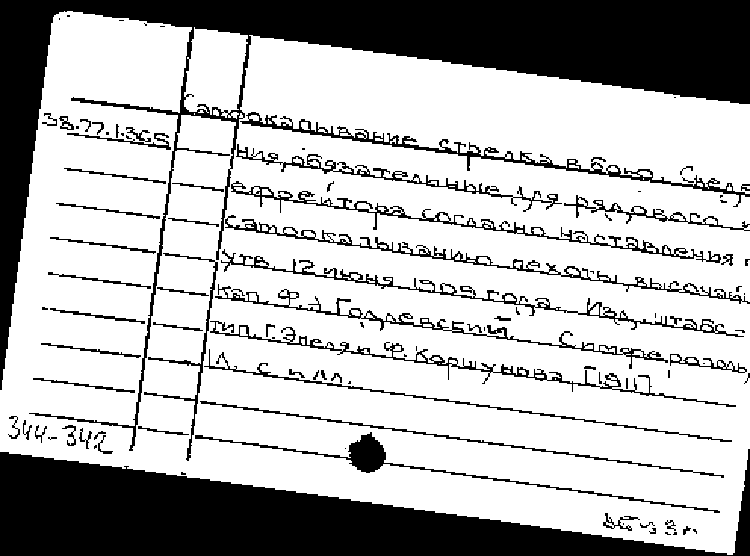 Самоокапывание стрелка в бою. Сведе
38.77.1.365
ния, обязательные для рядового и
ефрейтора согласно наставления п
самоокапыванию пехоты, высочай
утв. 12 июня 1909 года. Изд. штабс-
кап. Ф.А. Годлевский. Симферополь,
тип. Г. Эидля и Ф. Коршунова, [1911].
1л. с илл.
344-342